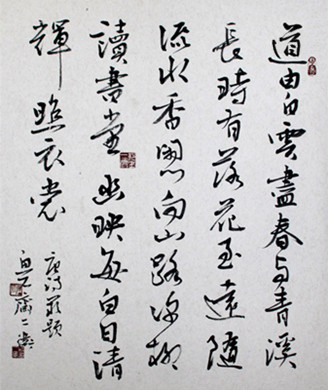 道由白雲盡春与青溪
長時有落花至遠隨
流水香閒向山路深柳
讀書堂幽映每白日清
輝照衣裳
唐诗闕題